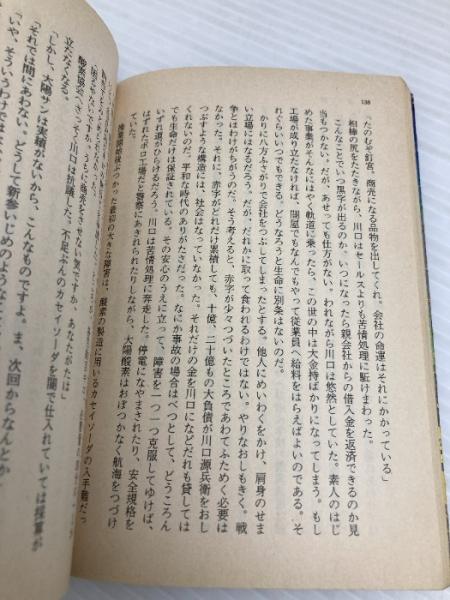 138
「たのむぞ釘宮、商売になる品物を出してくれ。会社の命運はそれにかかっている」
相棒の尻をたたきながら、川口はセールスよりも苦情処理に駈けまわった。
こんなことでいつ黒字が出るのか。いつになったら親会社からの借入金を返済できるのか見
当もつかない。だが、あせっても仕方がない。われながら川口は悠然としていた。素人のはじ
めた事業がそんなにはやく軌道に乗ったら、この世の中は大金持ばかりになってしまう。もし
工場が成り立たなければ、闇屋でもなんでもやって従業員へ給料をはらえばよいのである。そ
れぐらいいつでもできる。どうなろうと生命に別条はないのだ。
かりに八方ふさがりで会社をつぶしてしまったとする。他人にめいわくをかけ、肩身のせま
い立場にはなるだろう。だが、だれかに取って食われるわけではない。やりなおしもきく。戦
争とはわけがちがうのだ。そう考えると、赤字が少々つづいたところであわてふためく必要は
なかった。それに、赤字がどれだけ累積しても、十億、二十億もの大負債が川口源兵衛をおし
つぶすような構造には、社会はなっていなかった。それだけの金を川口になどだれも貸しては
くれないのだ。平和な時代のありがたさだった。なにか事故の場合はべつとして、どうころん
でも生命だけは保証されている。その安心のうえに立って、障害を一つ一つ克服してゆけば、
いずれ道がひらけるだろう。川口は苦情処理に奔走した。停電になやまされたり、安全規格を
はずれたボロ工場と警察にあきれられたりしながら、太陽酸素はおぼつかなく航海をつづけ
ていた。
操業開始後ぶつかった最初の大きな障害は、酸素の製造に用いるカセイソーダの入手難だっ
立たなくなる。
酸素協会へさっそく川口は抗議した。不足ぶんのカセイソーダを闇で仕入れていては採算が
「しかし、太陽サンは実績がないから、こんなものですよ。ま、次回からなんとか
「それでは間にあわない。どうして新参いじめのような
「いや、そういうわけでは